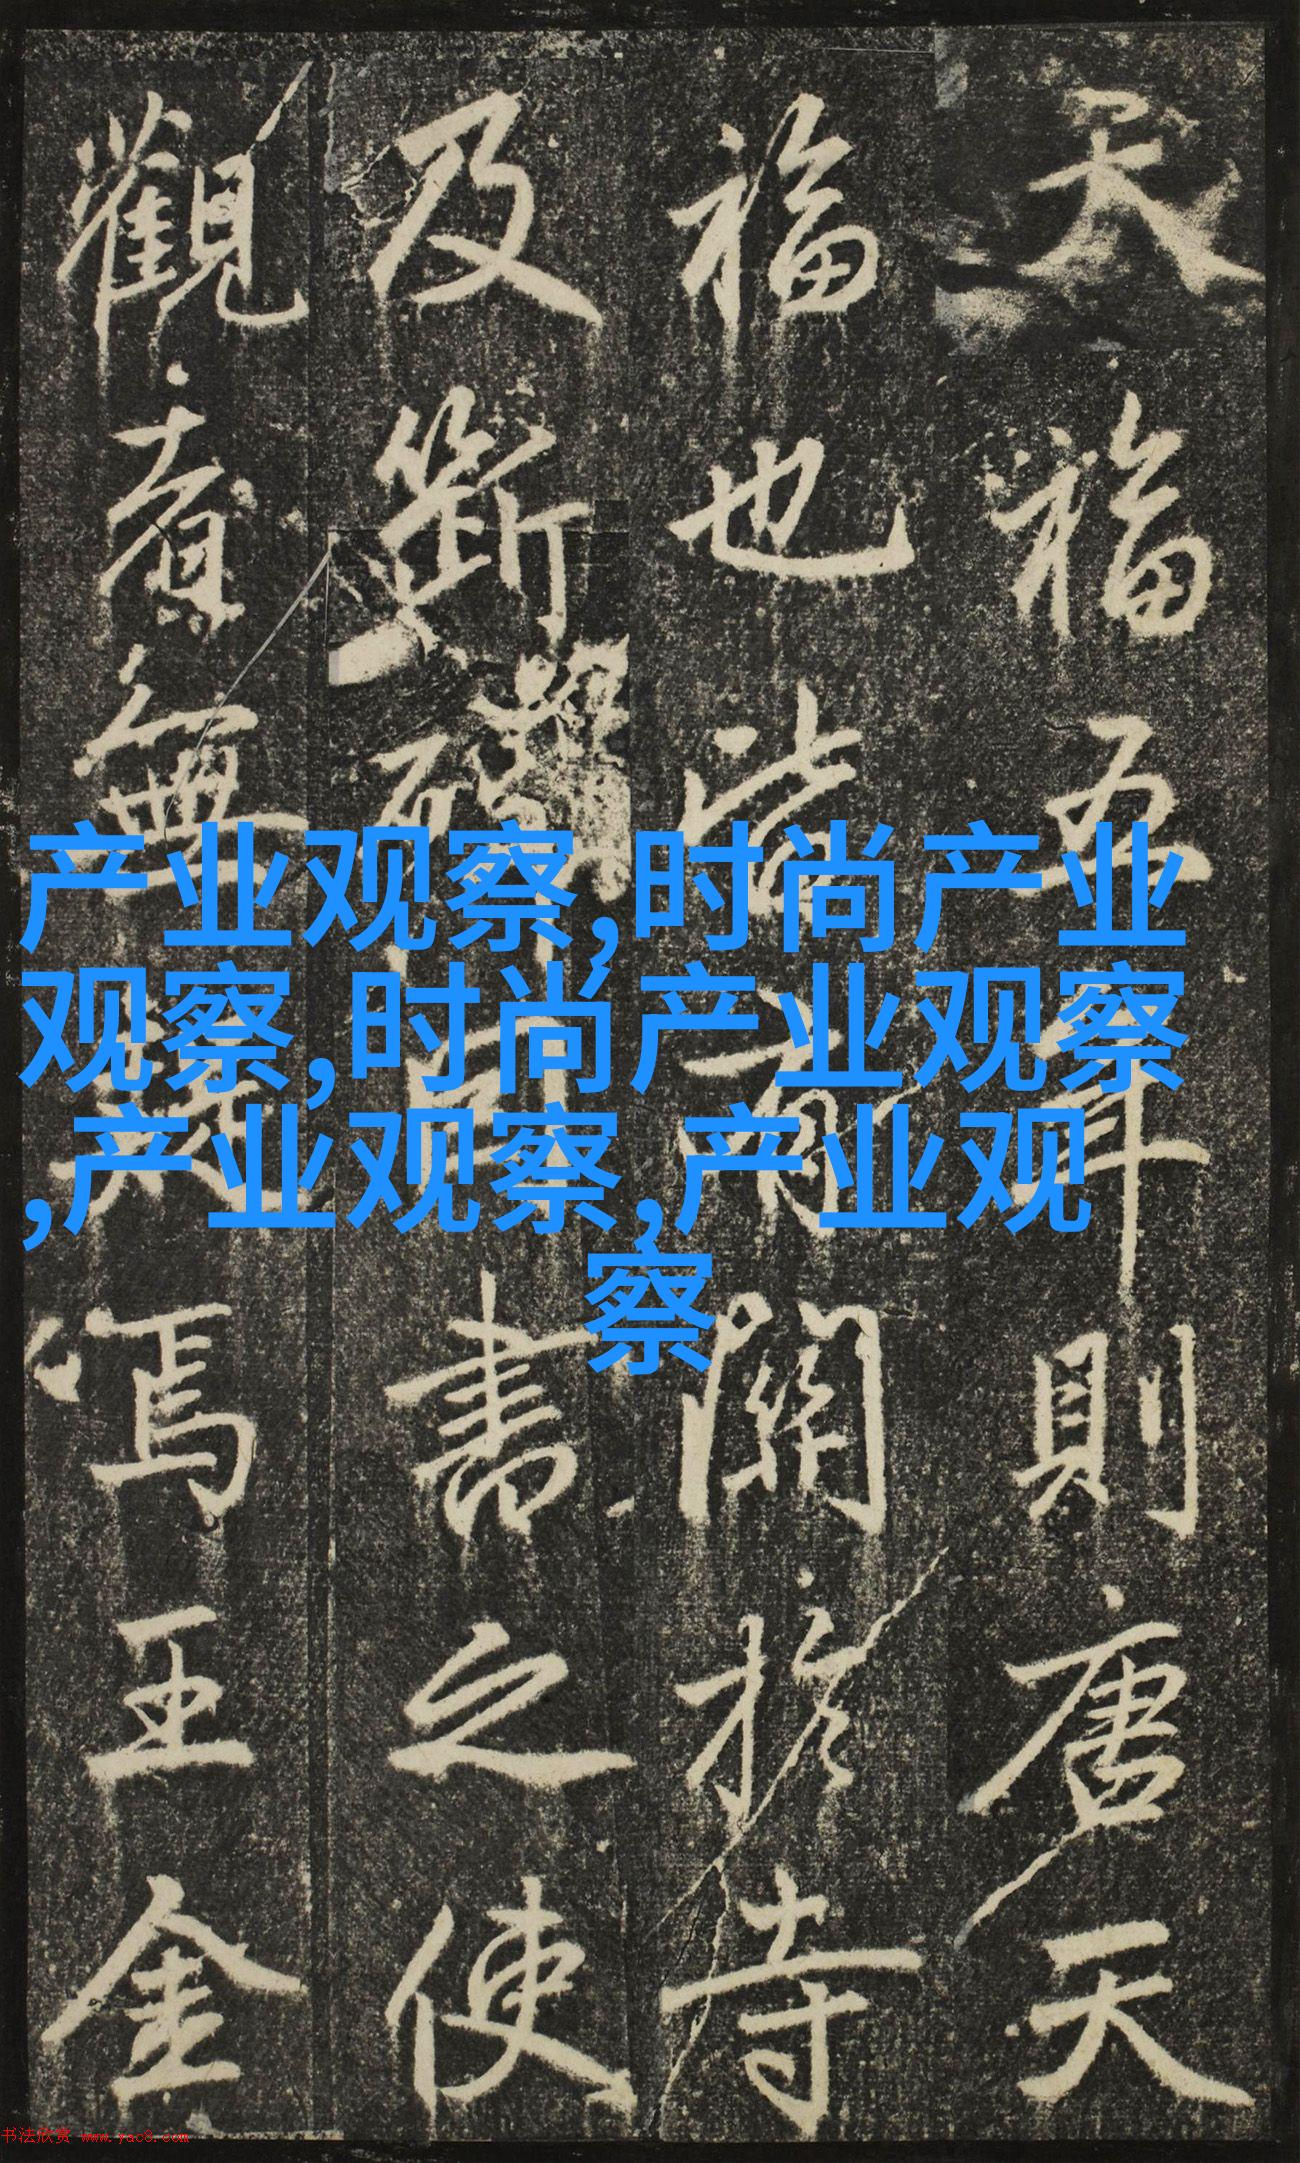 天福五年則唐天
福也皆有關於寺
及斷碑書之使
觀者無疑焉王金
产业观察,时尚产业
观察,时尚产业观察
,产业观察,产业观
察
书法欣赏 www.yac8.com